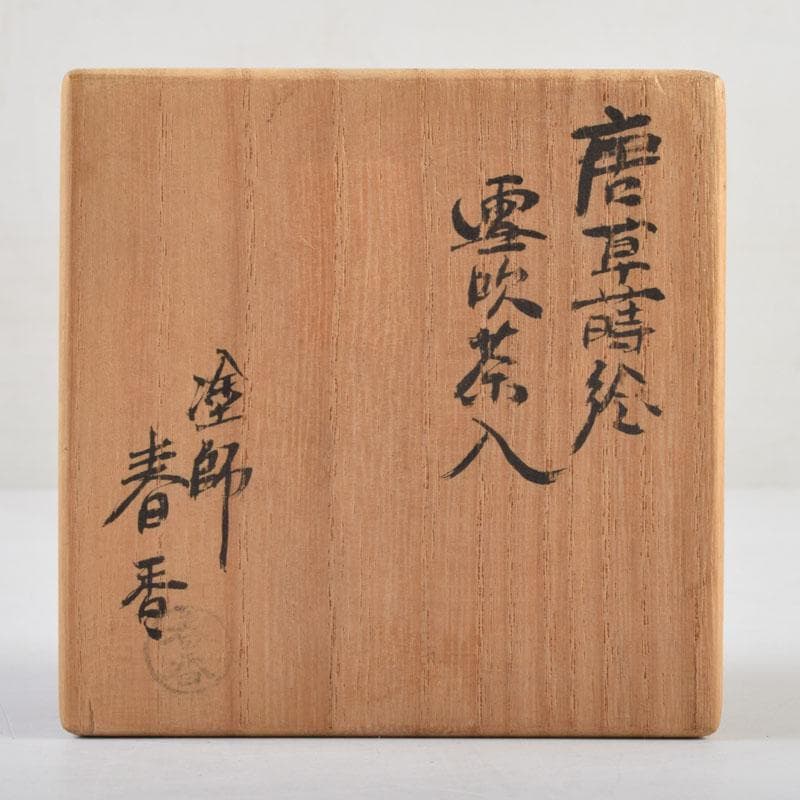 唐草蒔絵
雪吹茶入
塗師
春香